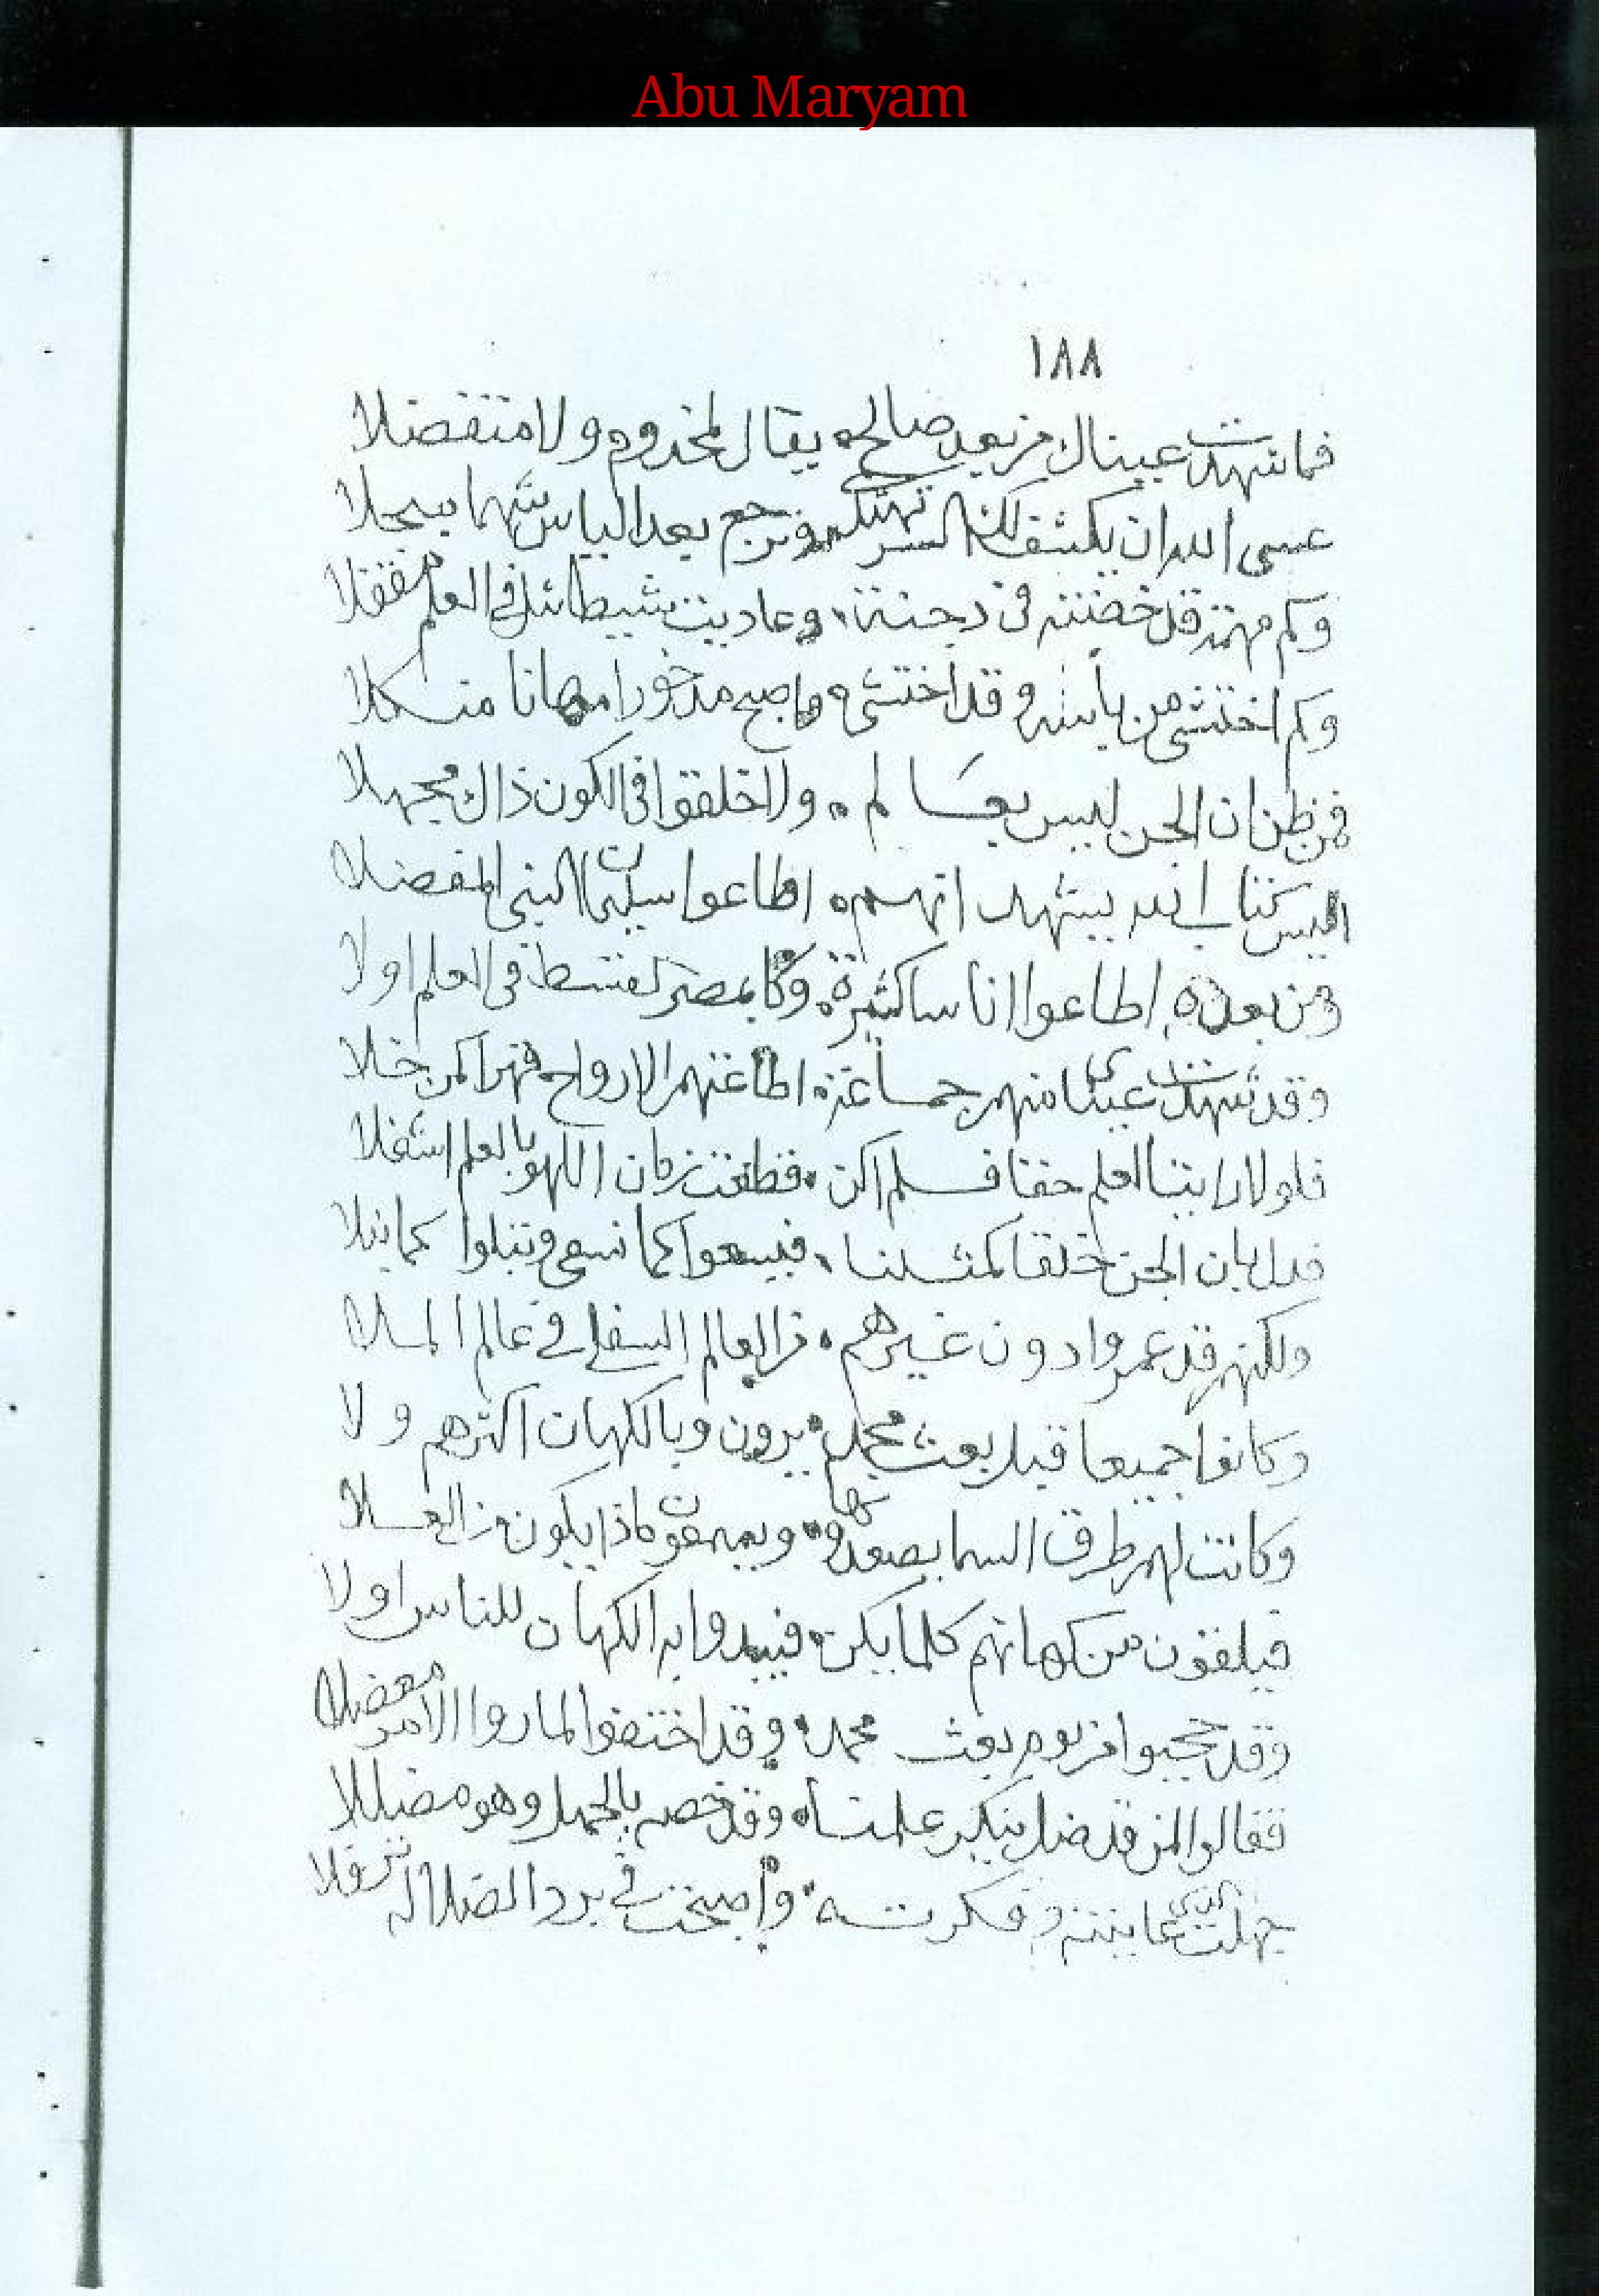 Abu Maryam
١٨٨
فما شهدت عيناك من بعد صالح يقال لمخدوم ولا متفضلا
عسى الله ان يكشف لك السر تهتك ونرجع بعد الياس شهما مبجلا
وكم مهمة قد خضته في دجنة وعاديت شيطانا في العلم مقفلا
وكم اختشى من بأسه وقد اختشى واصبح مدخورا مهانا منكلا
فمن ظن ان الجن ليس بعالم ولا خلقوا في الكون ذاك مجهلا
اليس كتاب الله يشهد انهم اطاعوا سليمان النبي المفضلا
ومن بعده اطاعوا اناسا كثيرة وكا بمصر في العلم اولا
وقد شهدت عيناى منهم جماعة اطاعتهم الارواح خلا
فلولا راينا العلم حقا فسلم اكن فطعت زمان اللهو بالعلم اشغلا
فدل بان الجن خلقا كمثلنا فيسعوا كما نسعى وتبلوا كما نبلا
ولكنهم قد عمروا دون غيرهم من العالم السفلي في عالم الملا
وكانوا جميعا قبل بعث محمد يرون وبالكهان اكثرهم ولا
وكانت لهم طرق السما يصعدونها ماذا يكون من العلا
فيلقون من كهانهم كلما يكن فيبدوا به الكهان للناس اولا
وقد حجبوا من يوم بعث محمد وقد اختفوا لما روا الامر معضلا
فقالوا لمن قد ضل ينكر علمنا وقد خصه بالجهل وهو مضللا
جهلت الذى عاينته وفكرته واصبحت في برد الضلاله ترفلا